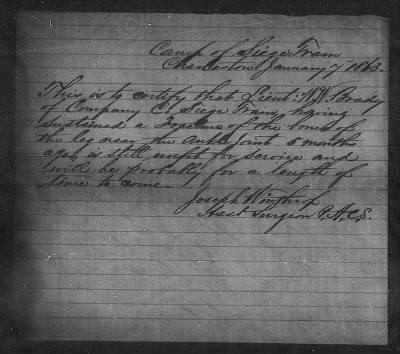 Camp of Siege Train
Charleston January 7 1863.
This is to certify that Lieut: W.W. Brady
of Company C. Siege Train, having
sustained a Fracture of the bones of
the leg near the Ankle joint 5 months
ago, is still unfit for service and
will be probably for a length of
time to come
Joseph Winthrop
Asst Surgeon P.A.C.S.